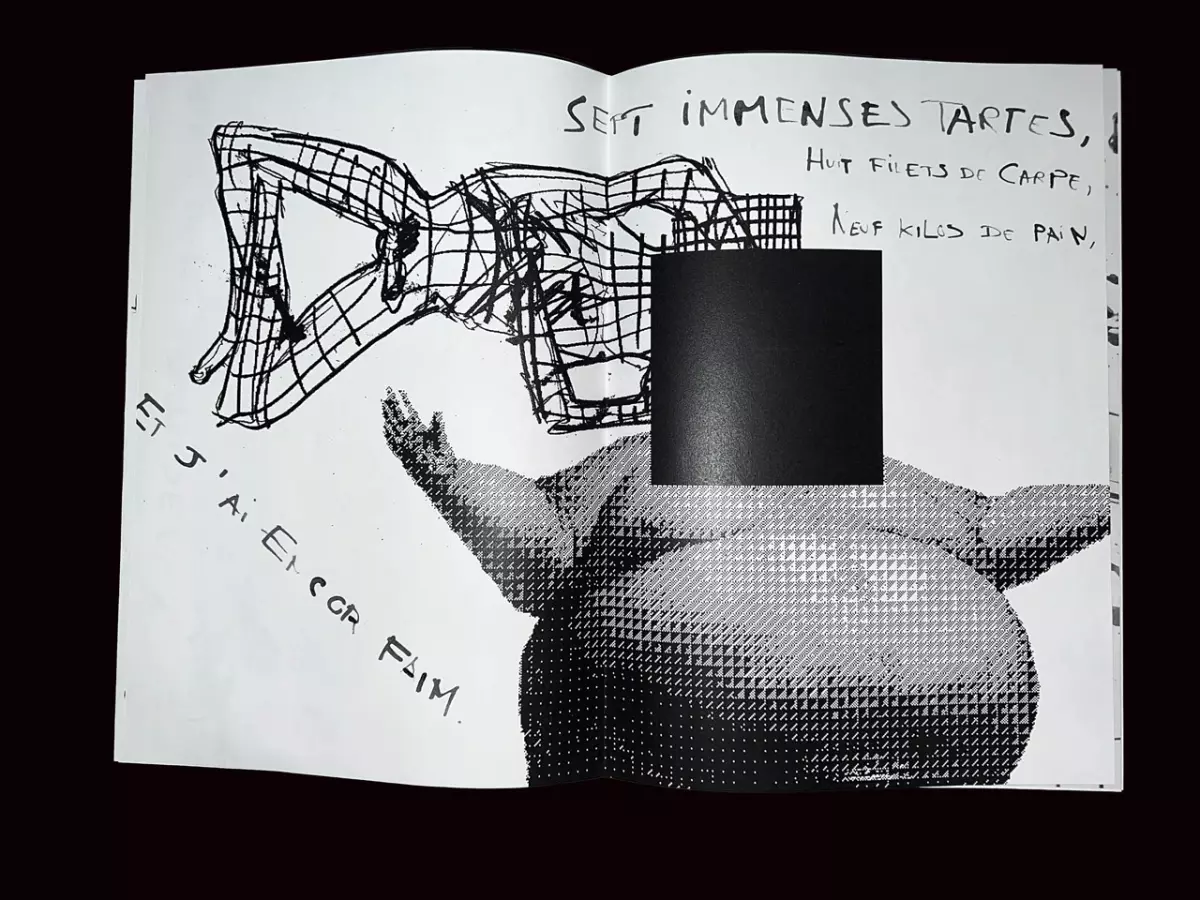 SEPT IMMENSES TARTES,
HUIT FILETS DE CARPE,
NEUF KILOS DE PAIN,
ET J'AI ENCOR FAIM.